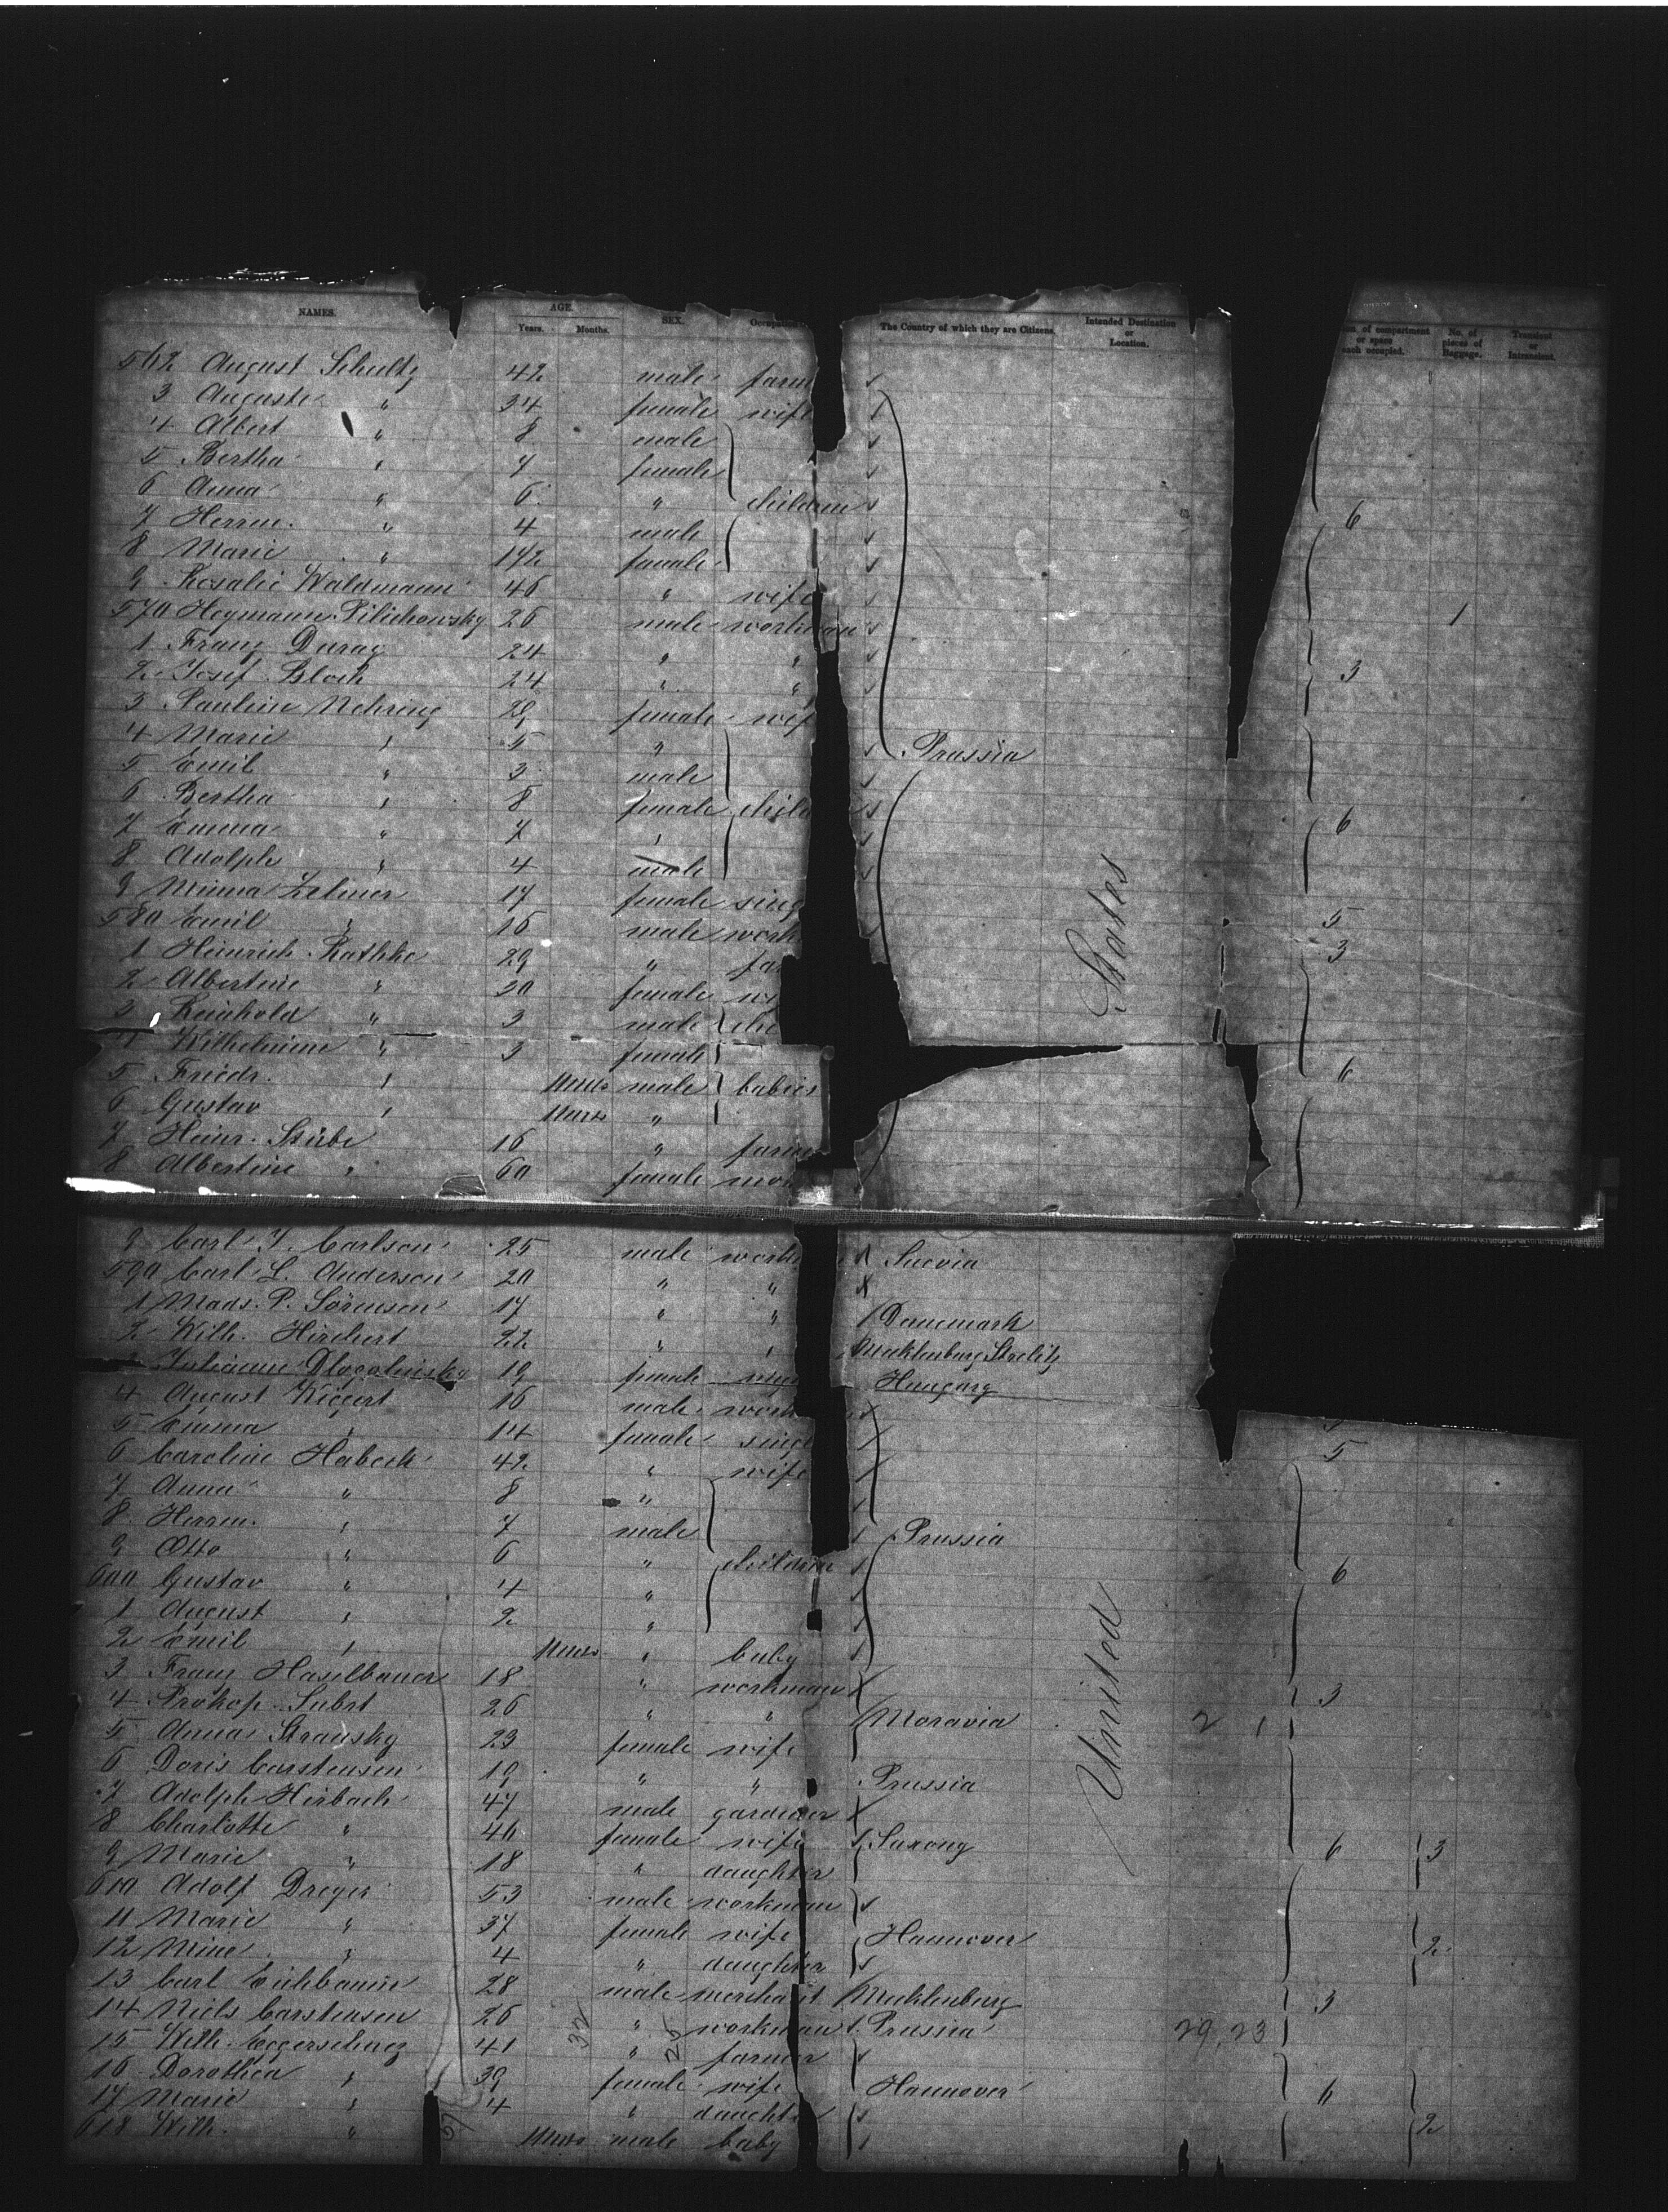 NAMES. AGE. SEX. Occupa The Country of which they are Citizens. Intended Destination or Location. of compartment or space each occupied. No. of pieces of Baggage. Transient or Intransient.
Years. Months.
562 August Schultz 42 male farm
3 Auguste " 34 female wife
4 Albert " 8 male
5 Bertha " 7 female
6 Anna " 6 " children
7 Herrm. " 4 male 6
8 Marie " 1 1/2 female
9 Rosalie Waldmann 46 " wife
570 Heymann Pilichowsky 26 male workman 1
1 Franz Durag 24 " "
2 Josef Bloch 24 " " 3
3 Pauline Nehring 29 female wif
4 Marie " 5 " Prussia
5 Emil " 3 male
6 Bertha " 8 female child
7 Emma " 7 " 6
8 Adolph " 4 male
9 Minna Zelmer 17 female sing
580 Emil " 16 male work 5
1 Heinrich Rathke 29 " fa 3
2 Albertine " 30 female wi
3 Reinhold " 3 male chi
4 Wilhelmine " 3 female
5 Friedr. " male babies 6
6 Gustav " "
7 Heinr. Stübe 16 " farm
8 Albertine " 60 female mo
States
9 Carl J. Carlson 25 male work Suevia
590 Carl L. Anderson 20 " "
1 Mads. P. Sörensen 17 " " Denemark
2 Wilh. Hirchert 22 " " Mecklenburg Strelitz
3 Juliane 19 female Hungary
4 August Kiggert 16 male work
5 Emma " 14 female singl 5
6 Caroline Habeck 42 " wife
7 Anna " 8 "
8 Herrm. " 7 male Prussia
9 Otto " 6 " children
600 Gustav " 4 " 6
1 August " 2 "
2 Emil " " baby
3 Franz Haselbauer 18 " workman
4 Prokop Subrt 26 " " Moravia 3
5 Anna Stransky 23 female wife 2 1
6 Doris Carstensen 19 " " Prussia
7 Adolph Hirbach 47 male gardener
8 Charlotte " 46 female wife Saxony 6 3
9 Marie " 18 " daughter
610 Adolf Dreyer 53 male workman
11 Marie " 37 female wife Hannover
12 Mine " 4 " daughter 2
13 Carl Eichbaum 28 male merchant Mecklenburg 3
14 Niels Carstensen 26 " workman Prussia
15 Wilh. Eggerschug 41 " farmer 29 23
16 Dorothea " 39 female wife Hannover 6
17 Marie " 4 " daught
618 Wilh. " male baby 2
United
32
25